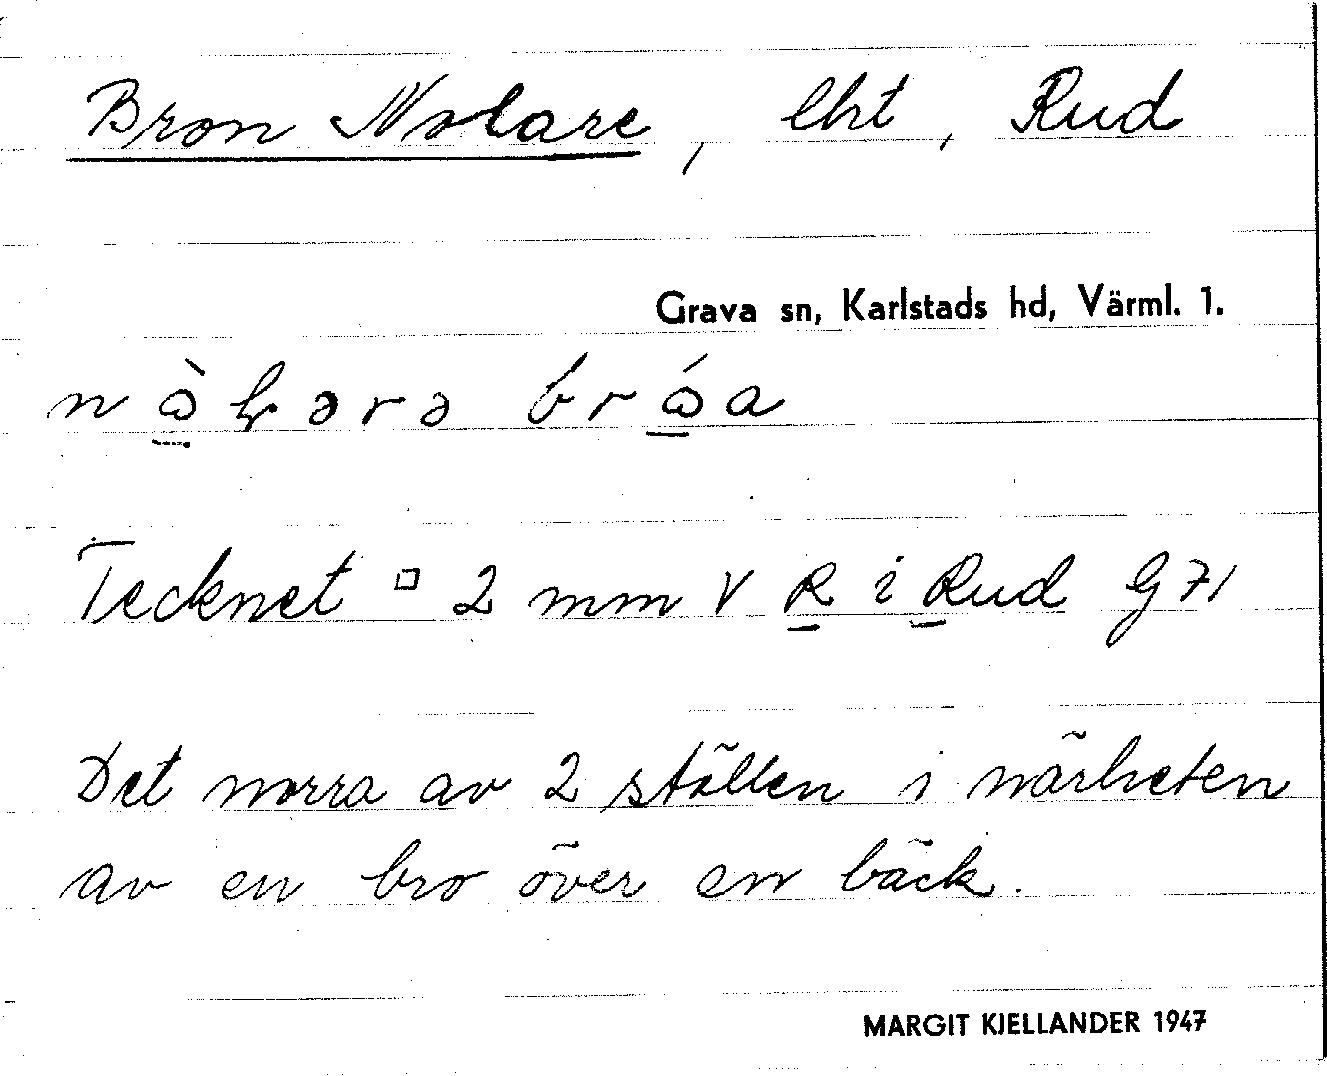 Bron Nolare, lht, Rud
Grava sn, Karlstads hd, Värml. 1.
Tecknet ▫ 2 mm V R i Rud G 71
Det norra av 2 ställen i närheten
av en bro över en bäck.
MARGIT KJELLANDER 1947